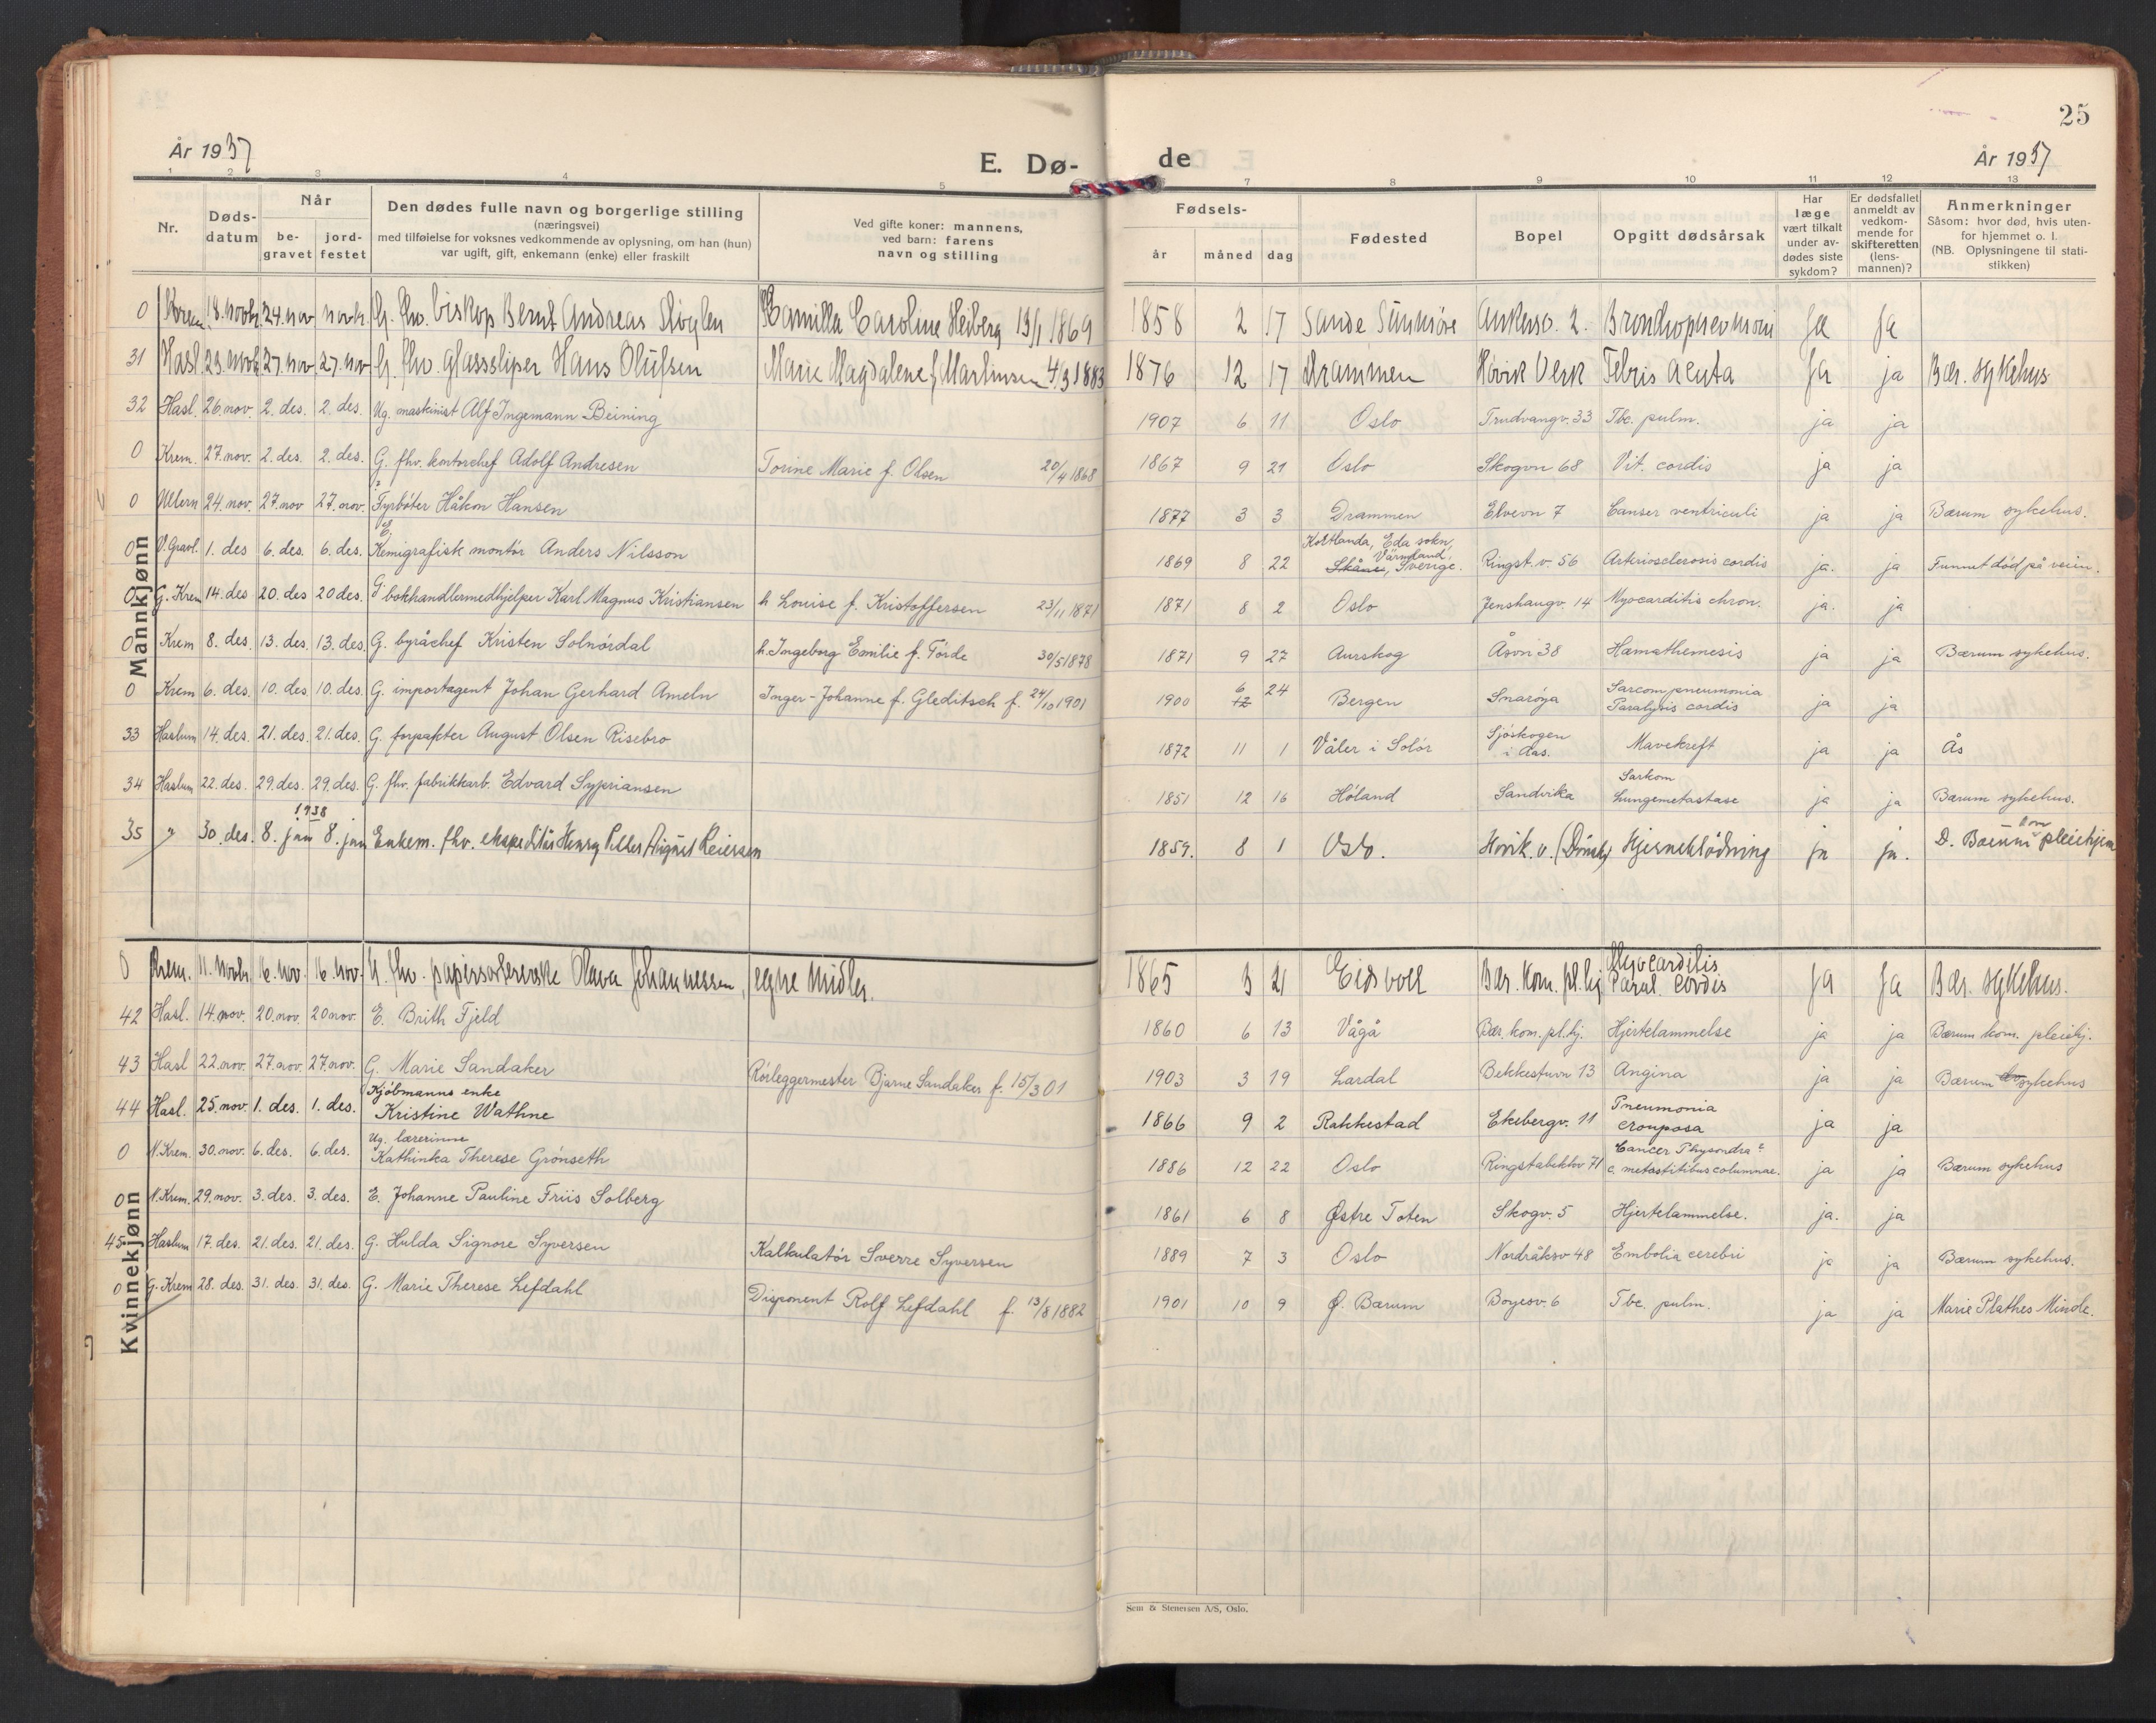 25
År 1937
E. Dø-
de
År 1937
1 2 3 4 5 7 8 9 10 11 12 13
Nr.
Døds-
datum
Når
be-
gravet
jord-
festet
Den dødes fulle navn og borgerlige stilling
(næringsvei)
med tilføielse for voksnes vedkommende av oplysning, om han (hun)
var ugift, gift, enkemann (enke) eller fraskilt
Ved gifte koner: mannens,
ved barn: farens
navn og stilling
Fødsels-
år
måned
dag
Fødested
Bopel
Opgitt dødsårsak
Har
læge
vært tilkalt
under av-
dødes siste
sykdom?
Er dødsfallet
anmeldt av
vedkom-
mende for
skifteretten
(lens-
mannen)?
Anmerkninger
Såsom: hvor død, hvis uten-
for hjemmet o. l.
(NB. Oplysningene til stati-
stikken)
Mannkjønn
0 Krem. 18. novbr. 24. nov novb. G. fhv. biskop Bernt Andreas Støylen Kamilla Caroline Heiberg 13/1 1869 1858 2 17 Sande Sunmöre Ankersv. 2. Bronchopnevmoni ja ja
31 Hasl 23. novb 27. nov 27. nov G. fhv. glasssliper Hans Olufsen Marie Magdalene f. Martinsen 4/3 1883 1876 12 17 Drammen Høvik Verk Febris acuta ja ja Bær. sykehus
32 Hasl. 26. nov. 2. des. 2. des. Ug. maskinist Alf Ingemann Beining 1907 6 11 Oslo Trudvangv. 33 Tbc. pulm. ja ja
0 Krem. 27. nov. 2. des. 2. des. G. fhv. kontorchef Adolf Andresen Torine Marie f. Olsen 20/4 1868 1867 9 21 Oslo Skogvn 68 Vit. cordis ja ja
0 Ullern 24. nov. 27. nov 27. nov. ? Fyrbøter Håkon Hansen 1877 3 3 Drammen Elvevn 7 Canser ventriculi ja ja Bærum sykehus.
0 V. Gravl. 1. des 6. des. 6. des. E. Kemigrafisk montör Anders Nilsson 1869 8 22 Eda sokn,
Värmland,
Skåne, Sverige. Ringst. v. 56 Arteriosclerosis cordis ja. ja Funnet død på veien.
0 G. Krem 14. des 20. des 20 des. G. bokhandlermedhjelper Karl Magnus Kristiansen h Louise f. Kristoffersen 23/11 1871 1871 8 2 Oslo Jenshaugv. 14 Myocarditis chron. ja. ja
0 Krem 8. des. 13. des. 13. des. G. byråchef Kristen Solnördal h. Ingeborg Emilie f. Förde 30/5 1878 1871 9 27 Aurskog Åsvn 38 Hæmathemesis ja ja Bærum sykehus.
0 Krem 6. des. 10. des 10. des. G. importagent Johan Gerhard Ameln Inger-Johanne f. Gleditsch f. 24/10 1901 1900 6
12 24 Bergen Snarøya Sarcom pneumonia
Paralysis cordis ja ja
33 Haslum 14. des. 21. des. 21. des. G. forpakter August Olsen Risebro 1872 11 1 Våler i Solör Sjöskogen
i Aas. Mavekreft ja ja Ås
34 Haslum 22. des. 29. des. 29. des. G. fhv. fabrikkarb. Edvard Sypriansen 1851 12 16 Höland Sandvika Sarkom
Lungemetastase ja ja Bærum sykehus.
1938
35 " 30. des. 8. jan 8. jan Enkem. fhv. Henry Reiersen 1859. 8 1 Oslo. Høvik. v. Hjerneblödning ja ja. D. Bærum kom pleiehjem
Kvinnekjønn
0 Krem. 11. novbr. 16. nov. 16. nov. U. fhv. papirsorterерske Olava Johannessen, egne midler. 1865 3 21 Eidsvoll Bær. kom. pl. hj Myocarditis
Paral. cordis ja ja Bær. sykehus.
42 Hasl. 14. nov. 20. nov. 20 nov. E. Brith Fjeld 1860 6 13 Vågå Bær. kom. pl. hj. Hjertelammelse ja ja Bærum kom. pleiehj.
43 Hasl 22. nov. 27. nov. 27. nov. G. Marie Sandaker Rörleggermester Bjarne Sandaker f. 15/3 01 1903 3 19 Lardal Bekkestuvn 13 Angina ja ja Bærum sykehus
44 Hasl. 25. nov. 1. des. 1. des. Kjöbmanns enke
Kristine Wathne 1866 9 2 Rakkestad Ekebergv. 11 Pneumonia
crouposa ja ja
0 N. Krem. 30. nov. 6. des. 6. des. Ug. lærerinne
Kathinka Therese Grönseth 1886 12 22 Oslo Ringstabekkv 71 Cancer
c. columnae. ja ja Bærum sykehus
0 N. Krem. 29. nov. 3. des. 3. des. E. Johanne Pauline Friis Solberg 1861 6 8 Østre Toten Skogv. 5 Hjertelammelse. ja. ja
45 Haslum 17. des. 21. des. 21. des. G. Hulda Signore Syversen Kalkulatör Sverre Syversen 1889 7 3 Oslo Nordråksv 48 Embolia cerebri ja ja Bærum sykehus.
0 G. Krem 28. des. 31. des. 31. des. G. Marie Therese Lefdahl Disponent Rolf Lefdahl f. 13/8 1882 1901 10 9 Ø. Bærum Boyesv. 6 Tbc. pulm. ja ja Marie Plathes Minde.
Sem & Stenersen A/S, Oslo.